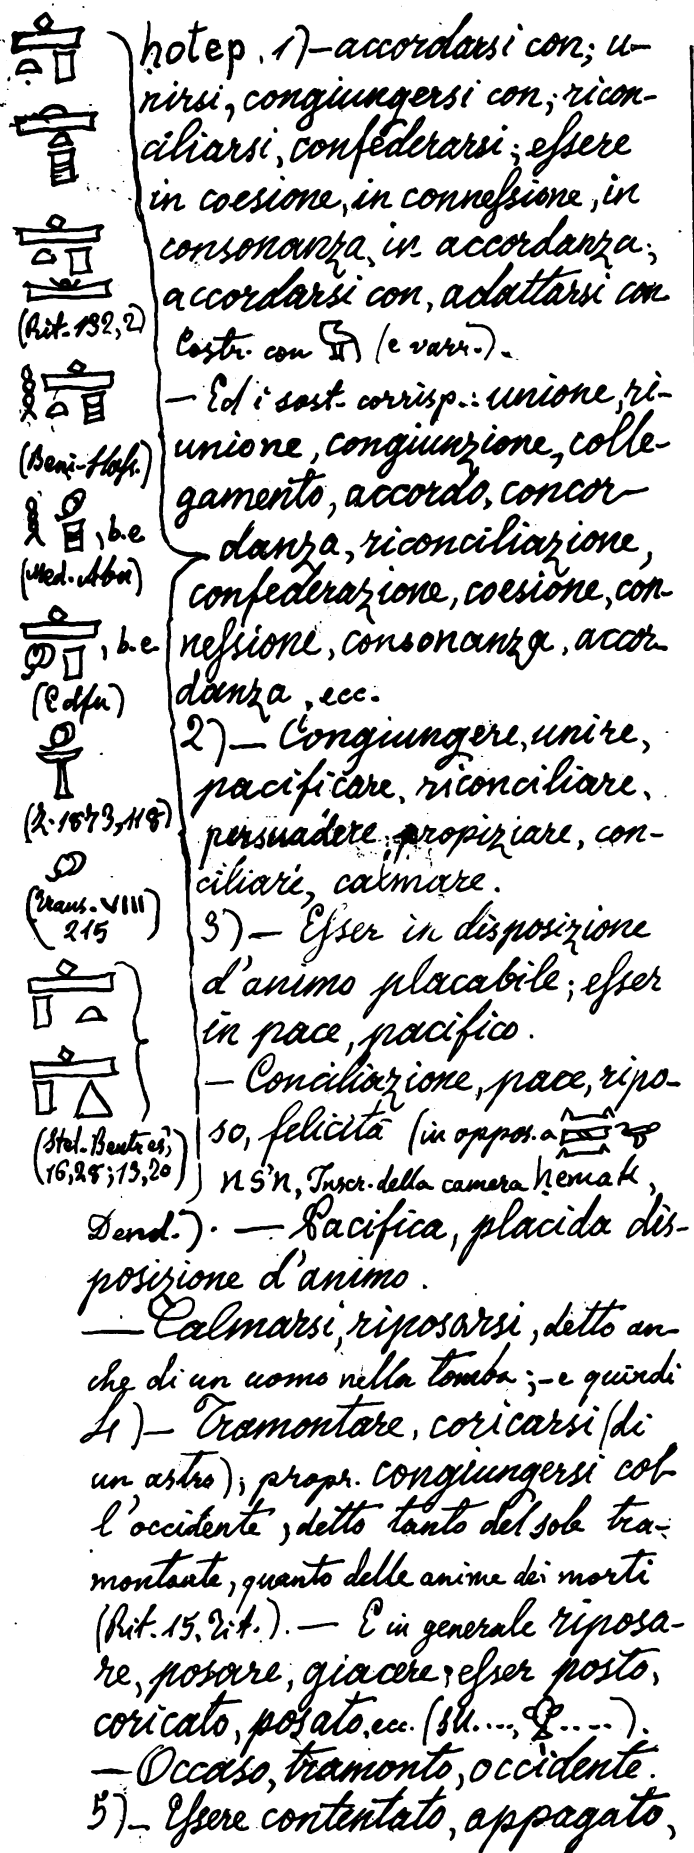 hotep. 1)—accordarsi con; u-
nirsi, congiungersi con; ricon-
ciliarsi, confederarsi; essere
in coesione, in connessione, in
consonanza, in accordanza;
accordarsi con, adattarsi con
(Rit. 132,2)
Costr. con (e varr.).
— Ed i sost. corrisp.: unione, ri-
unione, congiunzione, colle-
(Beni-Hass.)
gamento, accordo, concor-
, b.e
danza, riconciliazione,
(Med. Abu)
confederazione, coesione, con-
, b.e
nessione, consonanza, accor-
(Edfu)
danza, ecc.
2)— Congiungere, unire,
pacificare, riconciliare,
(Z. 1873, 118)
persuadere, propiziare, con-
ciliare, calmare.
(Trans. VIII
215)
3)— Esser in disposizione
d'animo placabile; esser
in pace, pacifico.
— Conciliazione, pace, ripo-
so, felicità (in oppos. a
(Stel. Bentres,
16,28; 13,20)
nšn, Inscr. della camera
Dend.). — Pacifica, placida dis-
posizione d'animo.
— Calmarsi, riposarsi, detto an-
che di un uomo nella tomba; — e quindi
4)— Tramontare, coricarsi (di
un astro); propr. congiungersi col-
l'occidente, detto tanto del sole tra-
montante, quanto delle anime dei morti
(Rit. 15, tit.). — E in generale riposa-
re, posare, giacere; esser posto,
coricato, posato, ecc. (su...., ....).
— Occaso, tramonto, occidente.
5)— Essere contentato, appagato,